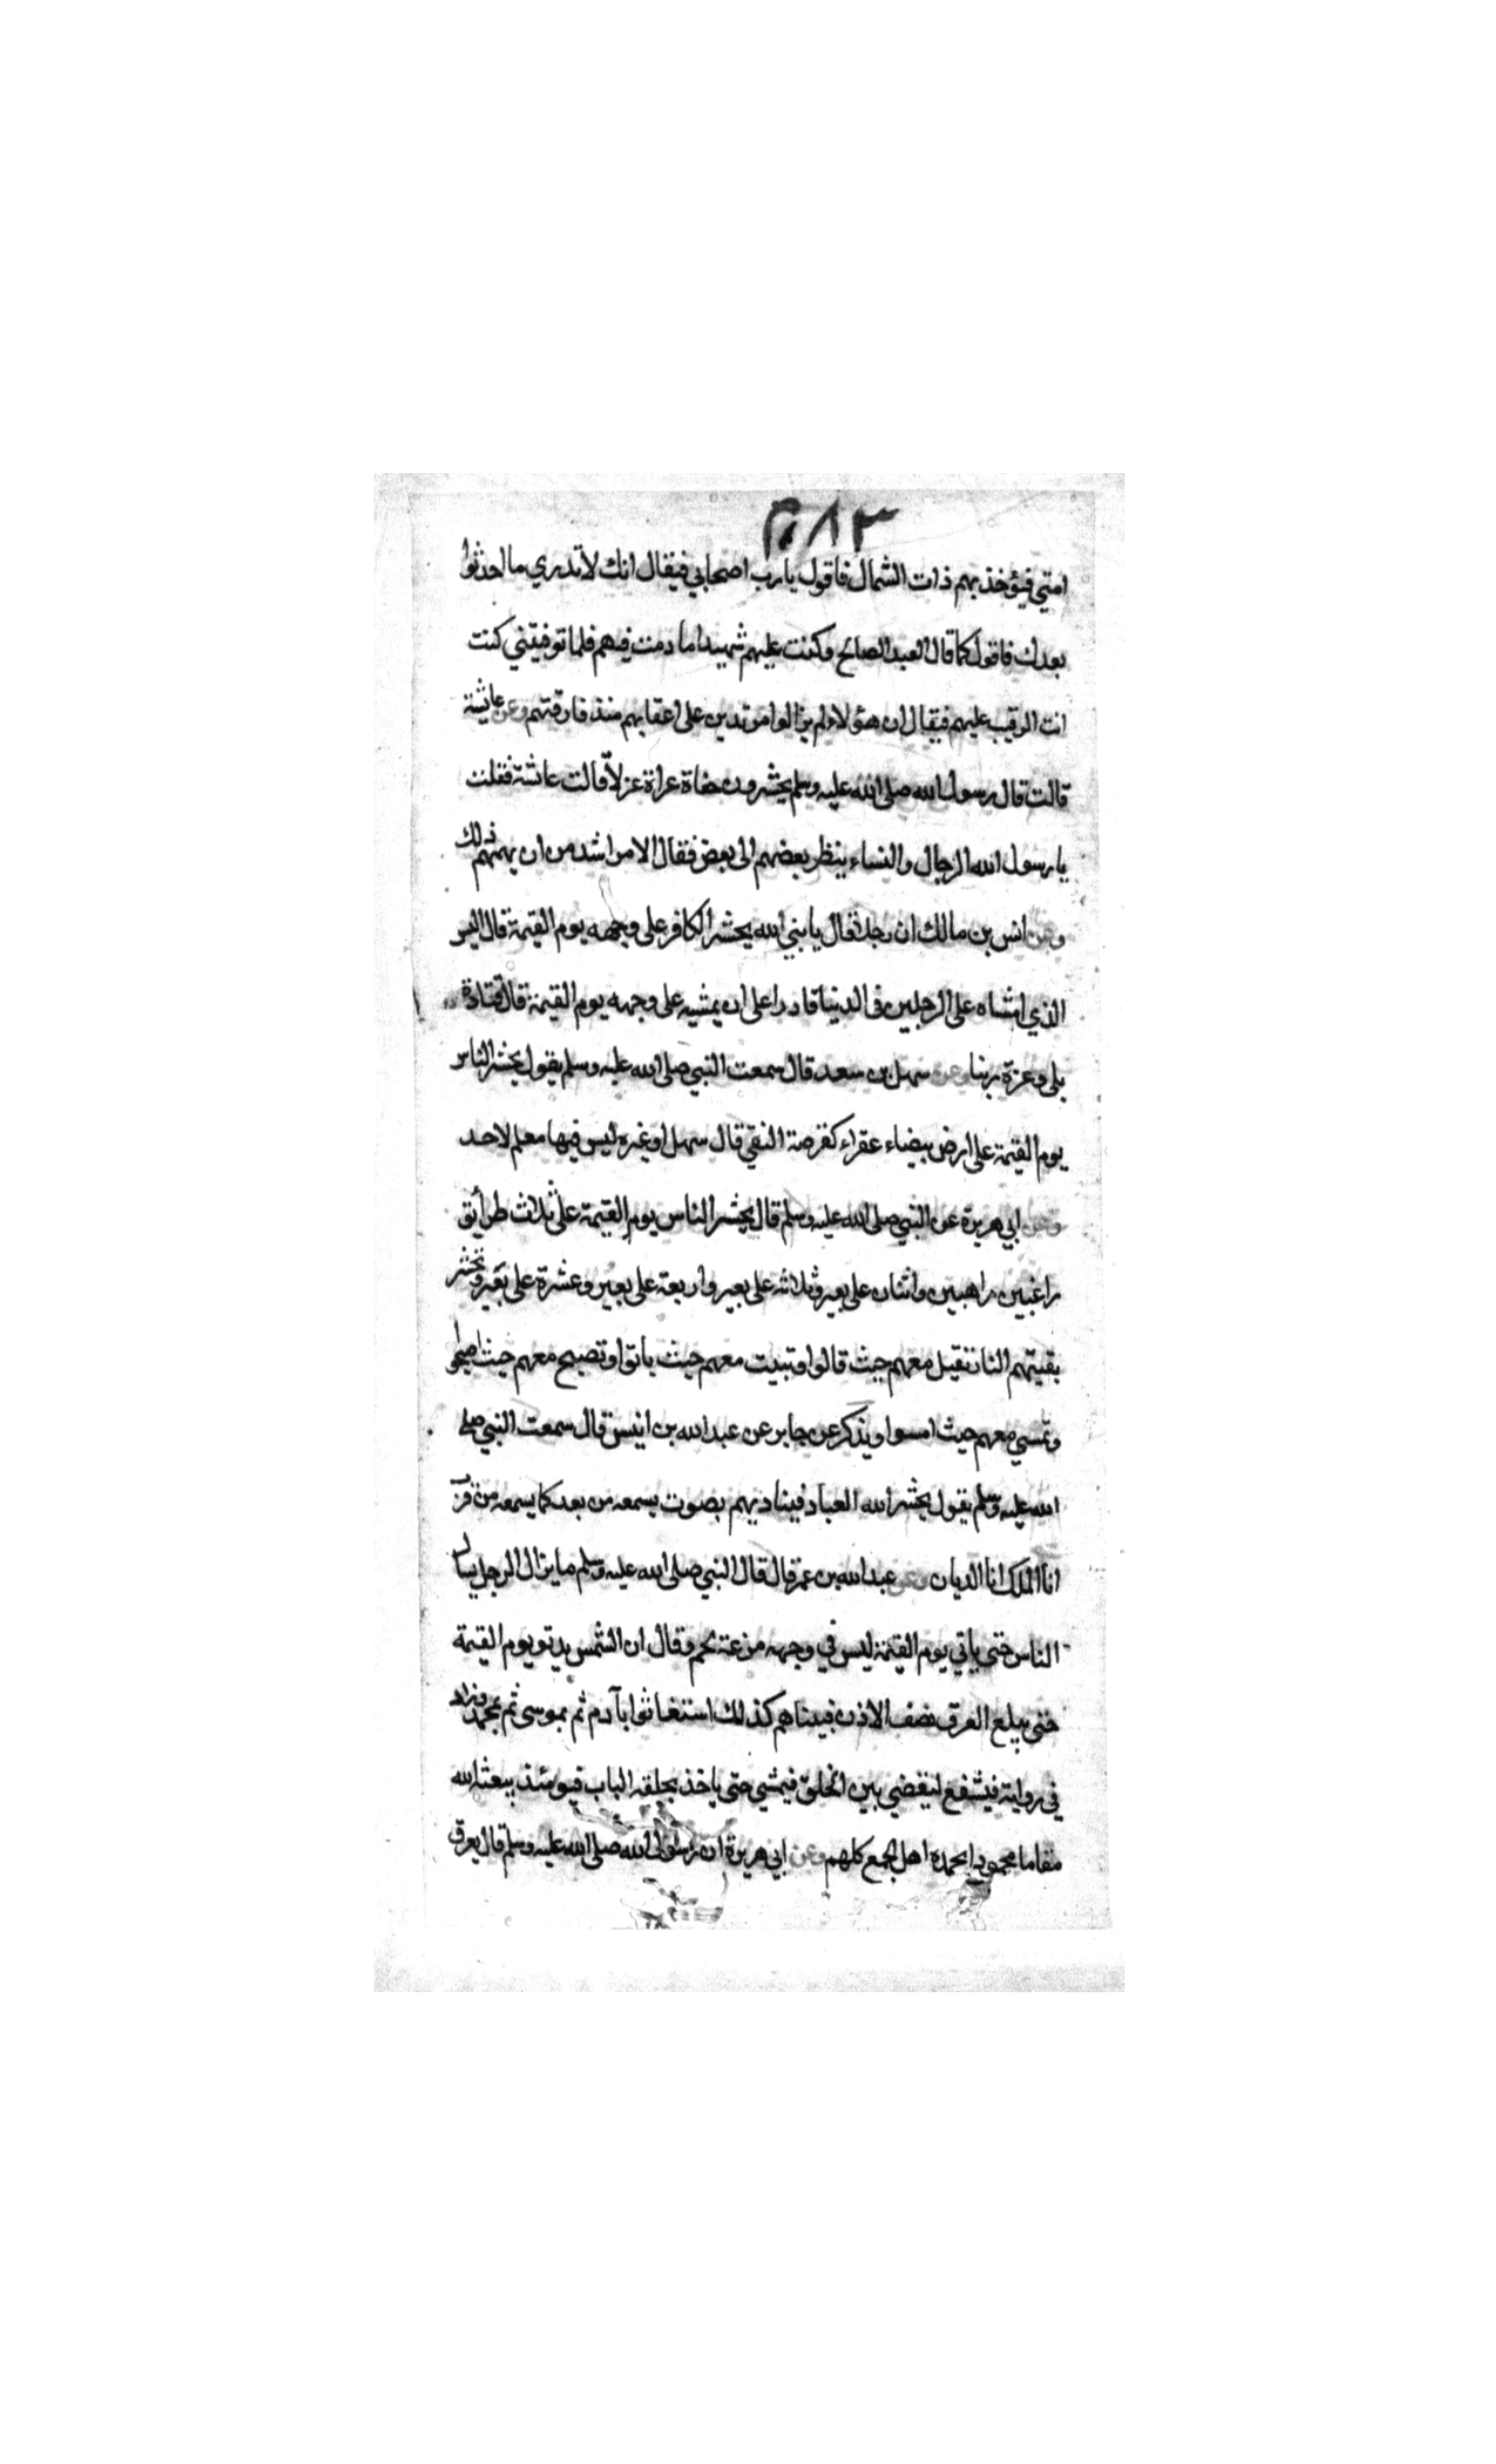 امتي فيؤخذ بهم ذات الشمال فاقول يارب اصحابي فيقال انك لا تدري ما احدثوا
بعدك فاقول كما قال العبد الصالح وكنت عليهم شهيدا ما دمت فيهم فلما توفيتني كنت
انت الرقيب عليهم فيقال ان هؤلاء لم يزالوا مرتدين على اعقابهم منذ فارقتهم وعن عايشة
قالت قال رسول الله صلى الله عليه وسلم يحشرون حفاة عراة غزلا قالت عائشة فقلت
يا رسول الله الرجال والنساء ينظر بعضهم الى بعض فقال الامر اشد من ان يهمهم ذلك
وعن انس بن مالك ان رجلا قال يا نبي الله يحشر الكافر على وجهه يوم القيمة قال اليس
الذي امشاه على الرجلين في الدنيا قادرا على ان يمشيه على وجهه يوم القيمة قال قتادة
بلى وعزة ربنا وعن سهل بن سعد قال سمعت النبي صلى الله عليه وسلم يقول يحشر الناس
يوم القيمة على ارض بيضاء عفراء كقرصة النقي قال سهل او غيره ليس فيها معلم لاحد
وعن ابي هريرة عن النبي صلى الله عليه وسلم قال يحشر الناس يوم القيمة على ثلاث طرأيق
راغبين راهبين واثنان على بعير وثلاثة على بعير واربعة على بعير وعشرة على بعير وتحشر
بقيتهم النار تقيل معهم حيث قالوا وتبيت معهم حيث باتوا وتصبح معهم حيث اصبحوا
وتمسي معهم حيث امسوا ويذكر عن جابر عن عبد الله بن انيس قال سمعت النبي صلى
الله عليه وسلم يقول يحشر الله العباد فيناديهم بصوت يسمعه من بعد كما يسمعه من قرب
انا الملك انا الديان وعن عبد الله بن عمر قال قال النبي صلى الله عليه وسلم ما يزال الرجل يسال
الناس حتى ياتي يوم القيمة ليس في وجهه مزعة لحم وقال ان الشمس يدنو يوم القيمة
حتى يبلغ العرق نصف الاذن فبيناهم كذلك استغاثوا بآدم ثم بموسى ثم بمحمد وزاد
في رواية فيشفع ليقضي بين الخلق فيمشي حتى ياخذ بحلقه الباب فيومئذ يبعثه الله
مقاما محمودا يحمده اهل الجمع كلهم وعن ابي هريرة ان رسول الله صلى الله عليه وسلم قال يعرق